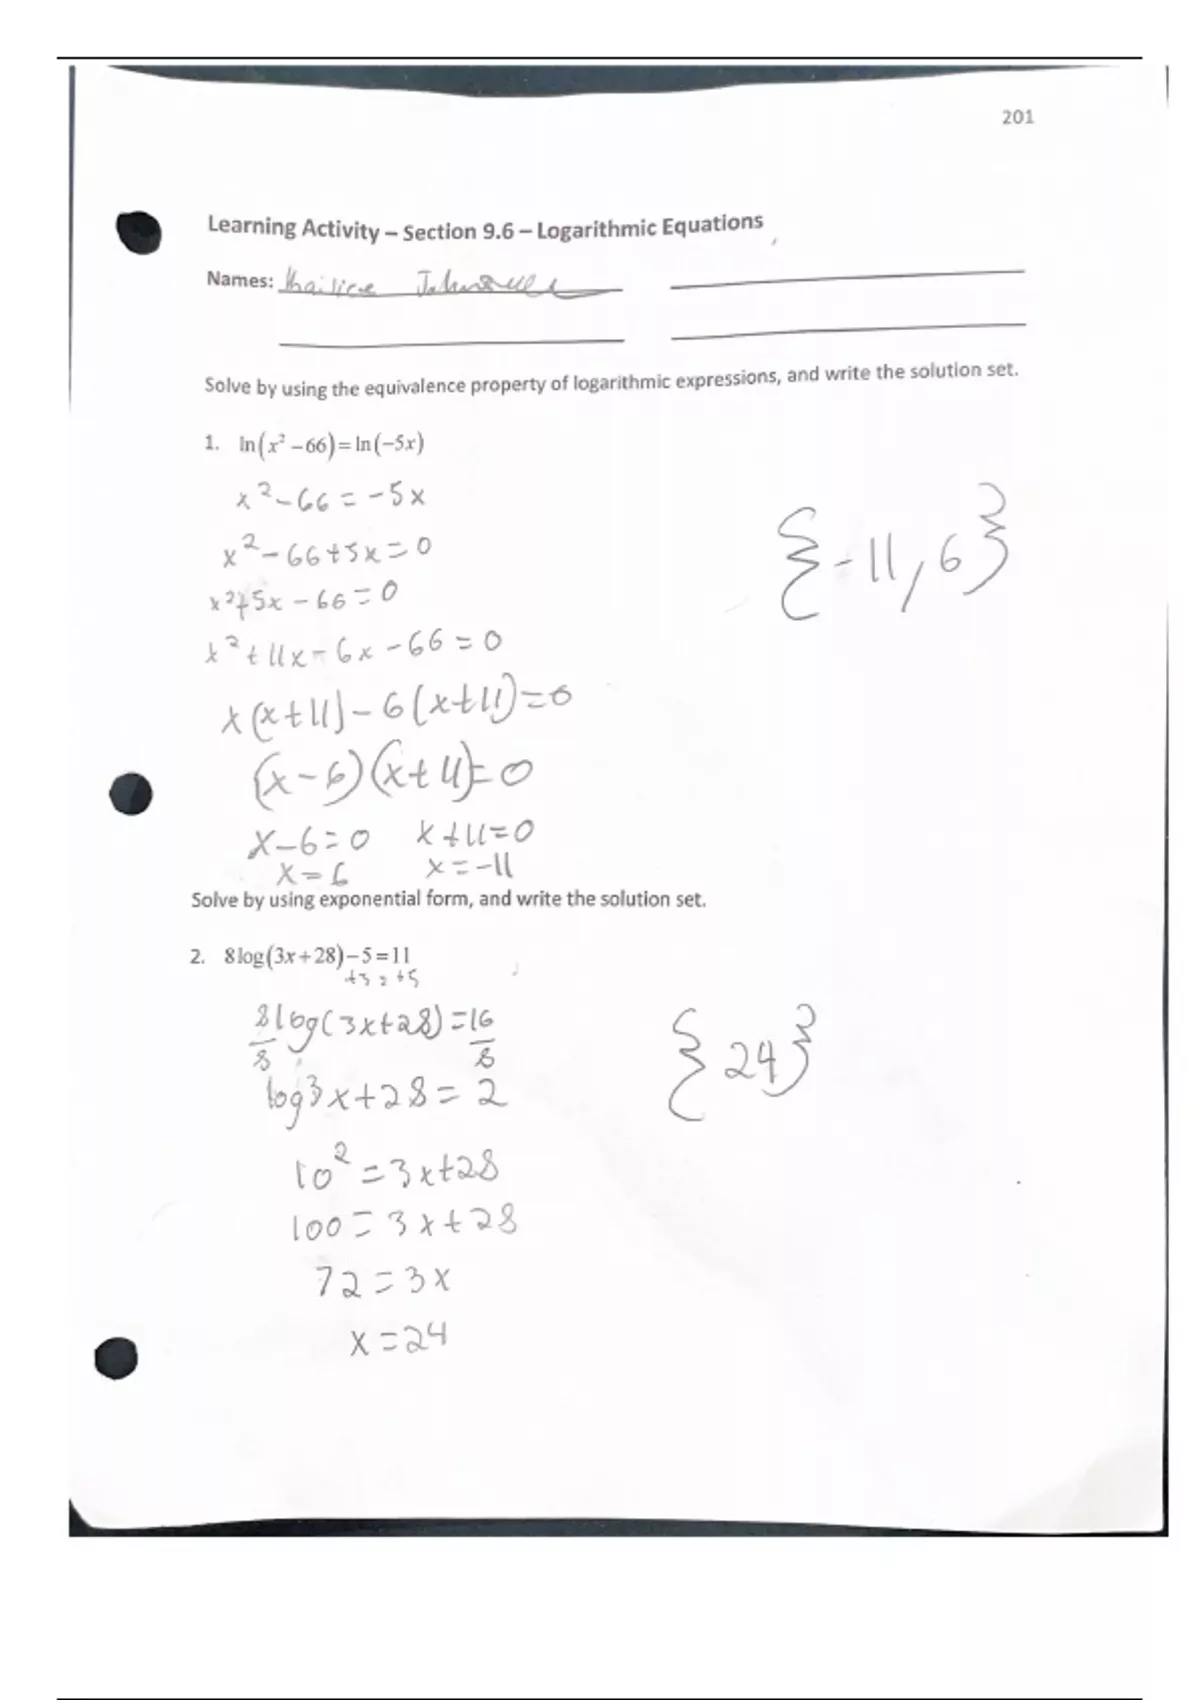 201
Learning Activity – Section 9.6 – Logarithmic Equations
Names:
Solve by using the equivalence property of logarithmic expressions, and write the solution set.
1. ln(x² – 66) = ln(–5x)
x² – 66 = –5x
x² – 66 + 5x = 0
{–11, 6}
x² + 5x – 66 = 0
x² + 11x – 6x – 66 = 0
x(x+11) – 6(x+11) = 0
(x–6)(x+11) = 0
x–6=0 x+11=0
x=6 x=–11
Solve by using exponential form, and write the solution set.
2. 8log(3x+28)–5=11
+5 = +5
8log(3x+28)=16
8 8
{24}
log3x+28=2
10²=3x+28
100=3x+28
72=3x
x=24